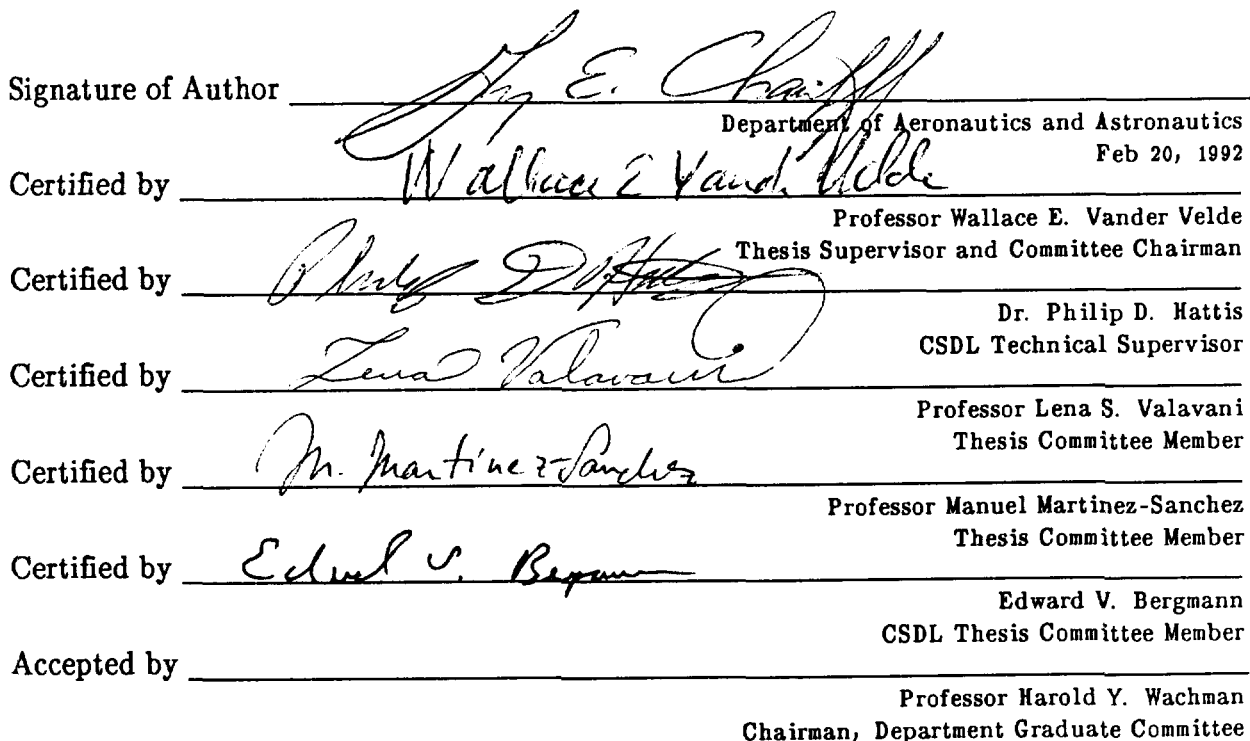 Signature of Author E.
Department of Aeronautics and Astronautics
Feb 20, 1992
Certified by Wallace E Vander Velde
Professor Wallace E. Vander Velde
Thesis Supervisor and Committee Chairman
Certified by Philip D. Hattis
Dr. Philip D. Hattis
CSDL Technical Supervisor
Certified by Lena Valavani
Professor Lena S. Valavani
Thesis Committee Member
Certified by M. Martinez-Sanchez
Professor Manuel Martinez-Sanchez
Thesis Committee Member
Certified by Edward V. Bergmann
Edward V. Bergmann
CSDL Thesis Committee Member
Accepted by
Professor Harold Y. Wachman
Chairman, Department Graduate Committee